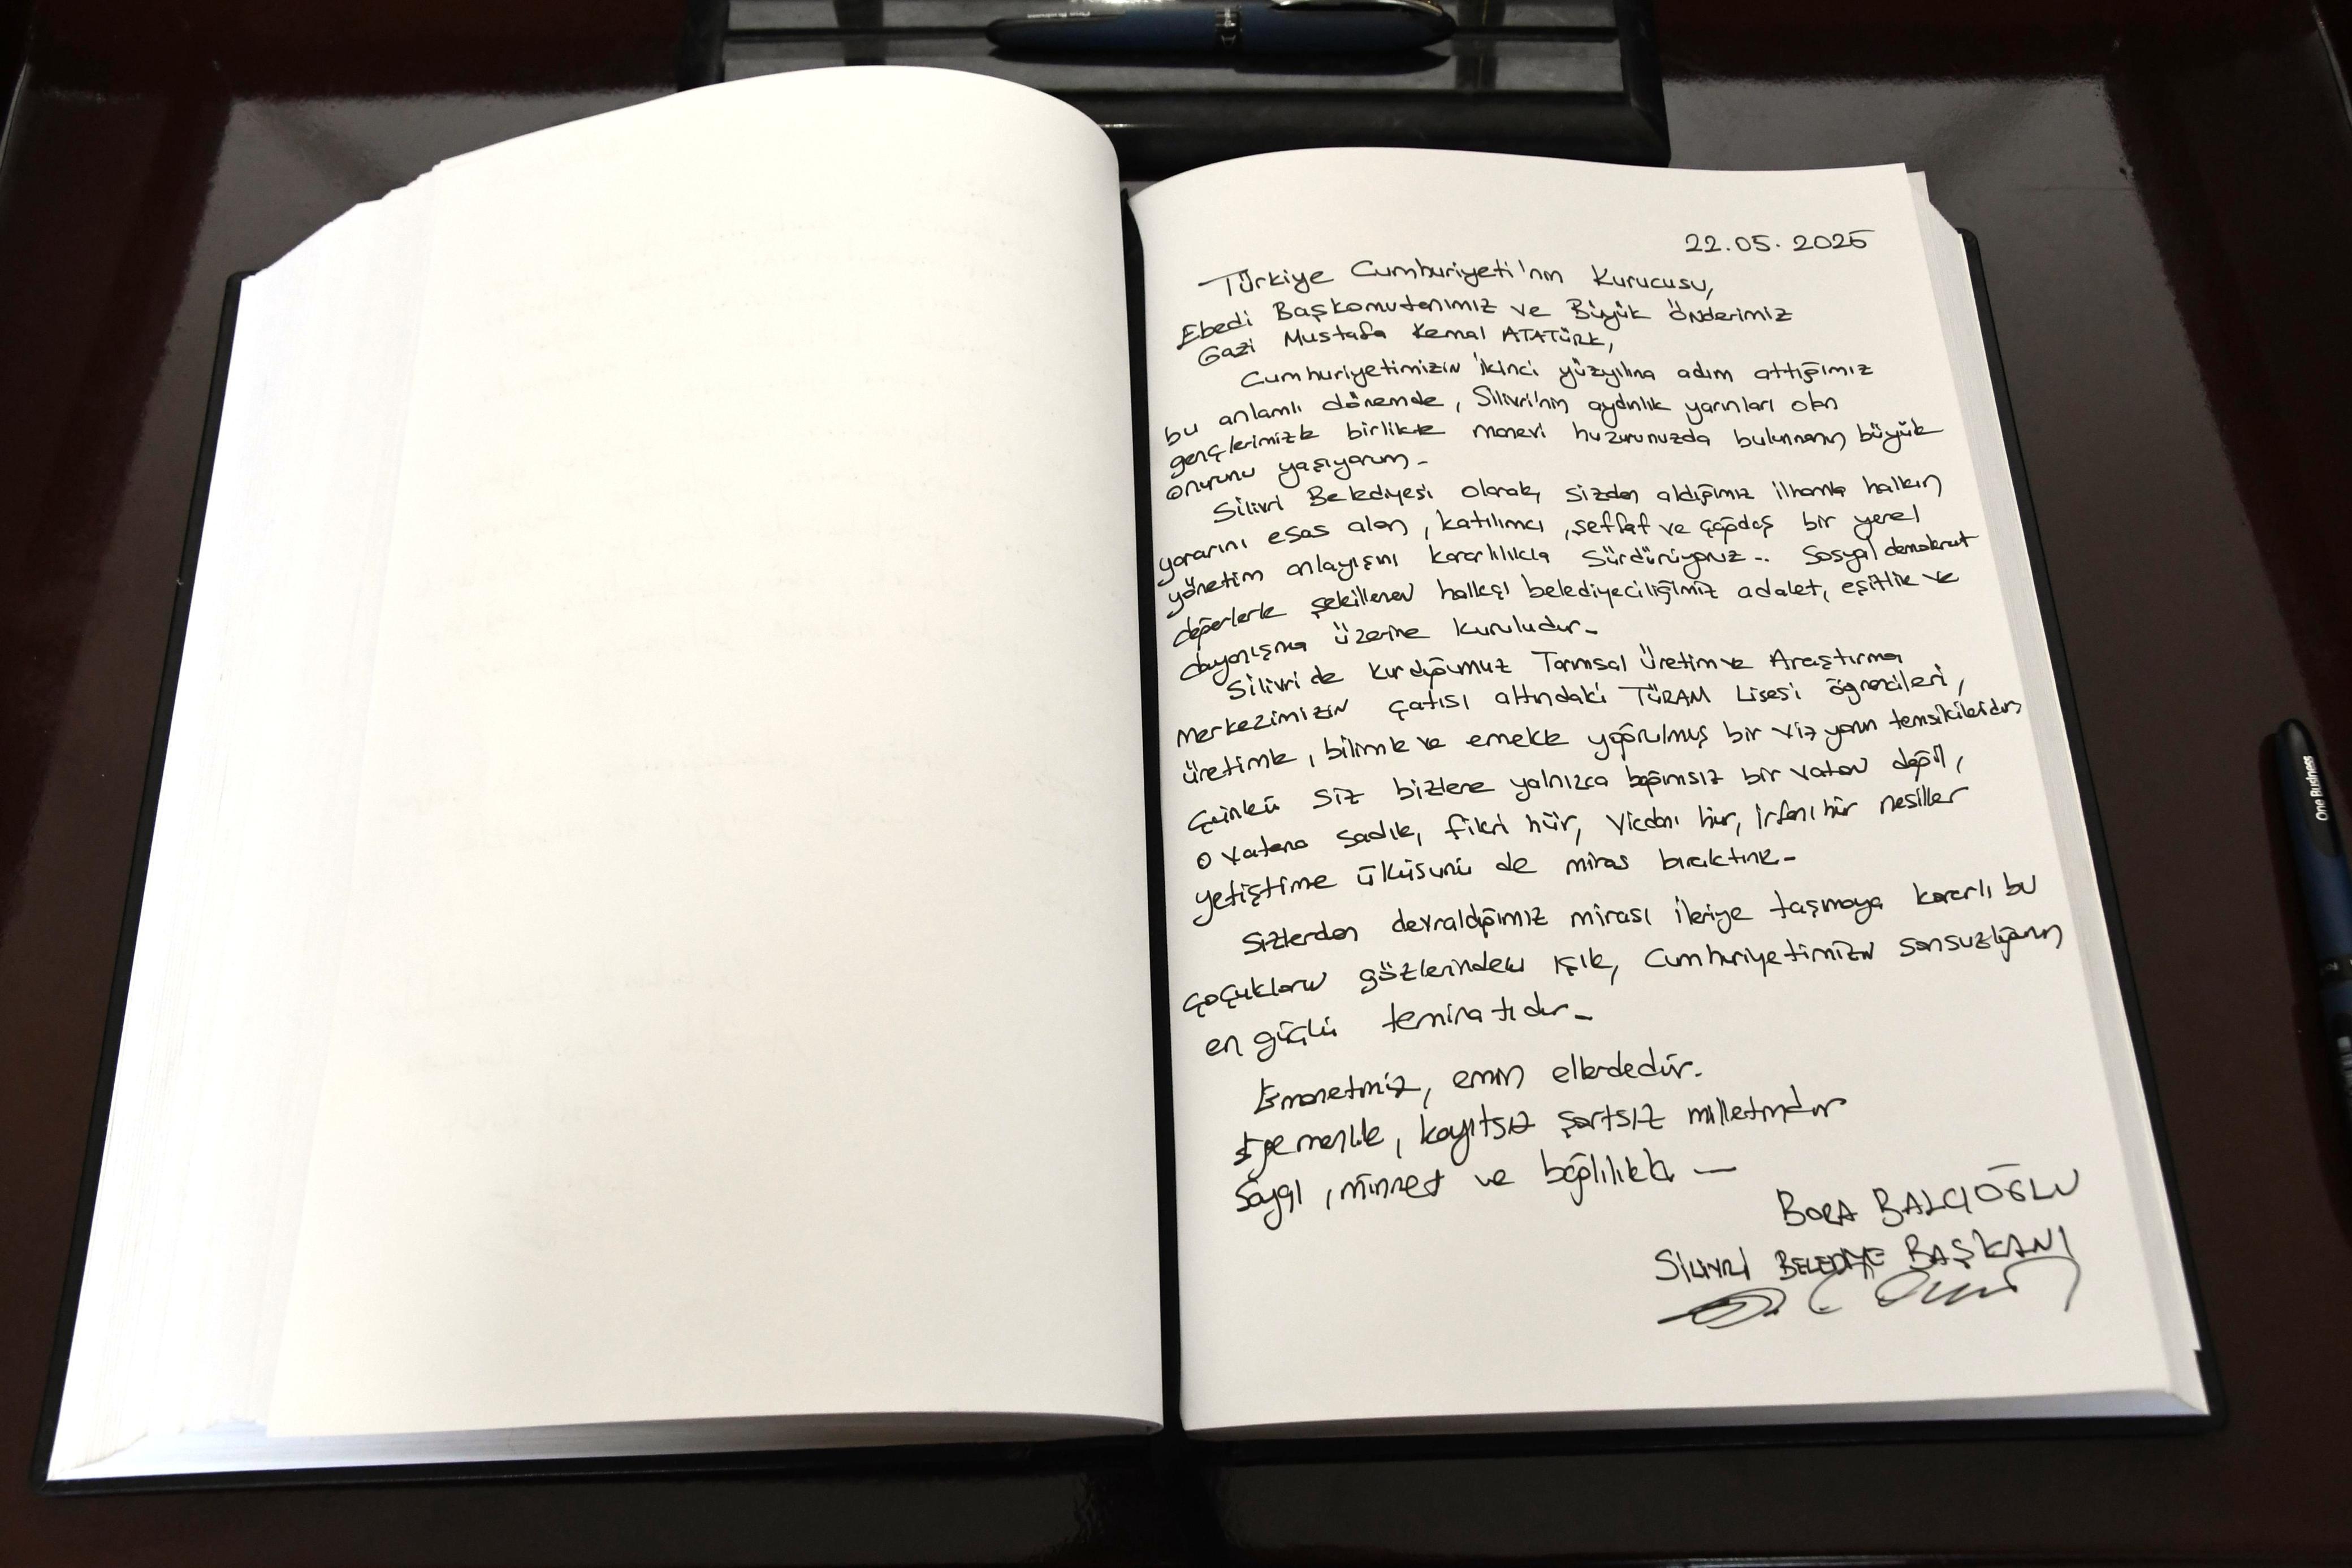 22.05.2025
Türkiye Cumhuriyeti'nin Kurucusu,
Ebedi Başkomutanımız ve Büyük Önderimiz
Gazi Mustafa Kemal ATATÜRK,
Cumhuriyetimizin ikinci yüzyılına adım attığımız
bu anlamlı dönemde, Silivri'nin aydınlık yarınları olan
gençlerimizle birlikte manevi huzurunuzda bulunmanın büyük
onurunu yaşıyorum.
Silivri Belediyesi olarak, sizden aldığımız ilhamla halkın
yararını esas alan, katılımcı, şeffaf ve çağdaş bir yerel
yönetim anlayışını kararlılıkla sürdürüyoruz.. Sosyal demokrat
değerlerle şekillenen halkçı belediyeciliğimiz adalet, eşitlik ve
dayanışma üzerine kuruludur.
Silivri'de kurduğumuz Tarımsal Üretim ve Araştırma
Merkezimizin çatısı altındaki TÜRAM Lisesi öğrencileri,
üretimle, bilimle ve emekle yoğrulmuş bir vizyonun temsilcileridir,
Çünkü siz bizlere yalnızca bağımsız bir vatan değil,
o vatana sadık, fikri hür, vicdanı hür, irfanı hür nesiller
yetiştirme ülküsünü de miras bıraktınız.
Sizlerden devraldığımız mirası ileriye taşımaya kararlı bu
çoçukların gözlerindeki ışık, Cumhuriyetimizin sonsuzluğunun
en güçlü teminatıdır.
Emanetiniz, emin ellerdedir.
Egemenlik, kayıtsız şartsız milletindir
Saygı, minnet ve bağlılıkla —
BORA BALCIOĞLU
SİLİVRİ BELEDİYE BAŞKANI
One Business
One Business